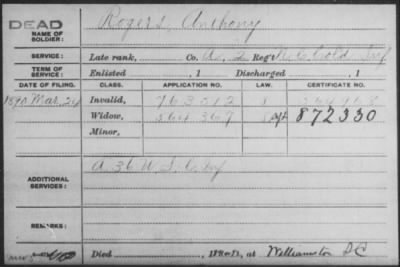 DEAD
NAME OF SOLDIER: Rogers, Anthony
SERVICE: Late rank, Co. A. 2 Reg't N.C. Cold Inf
TERM OF SERVICE: Enlisted , 1 Discharged , 1
DATE OF FILING. CLASS. APPLICATION NO. LAW. CERTIFICATE NO.
1890 Mar. 24 Invalid, 763512
Widow, 564367 872330
Minor,
ADDITIONAL SERVICES: A. 36 U.S. C. Inf
REMARKS:
Died , 1 , at Williamston